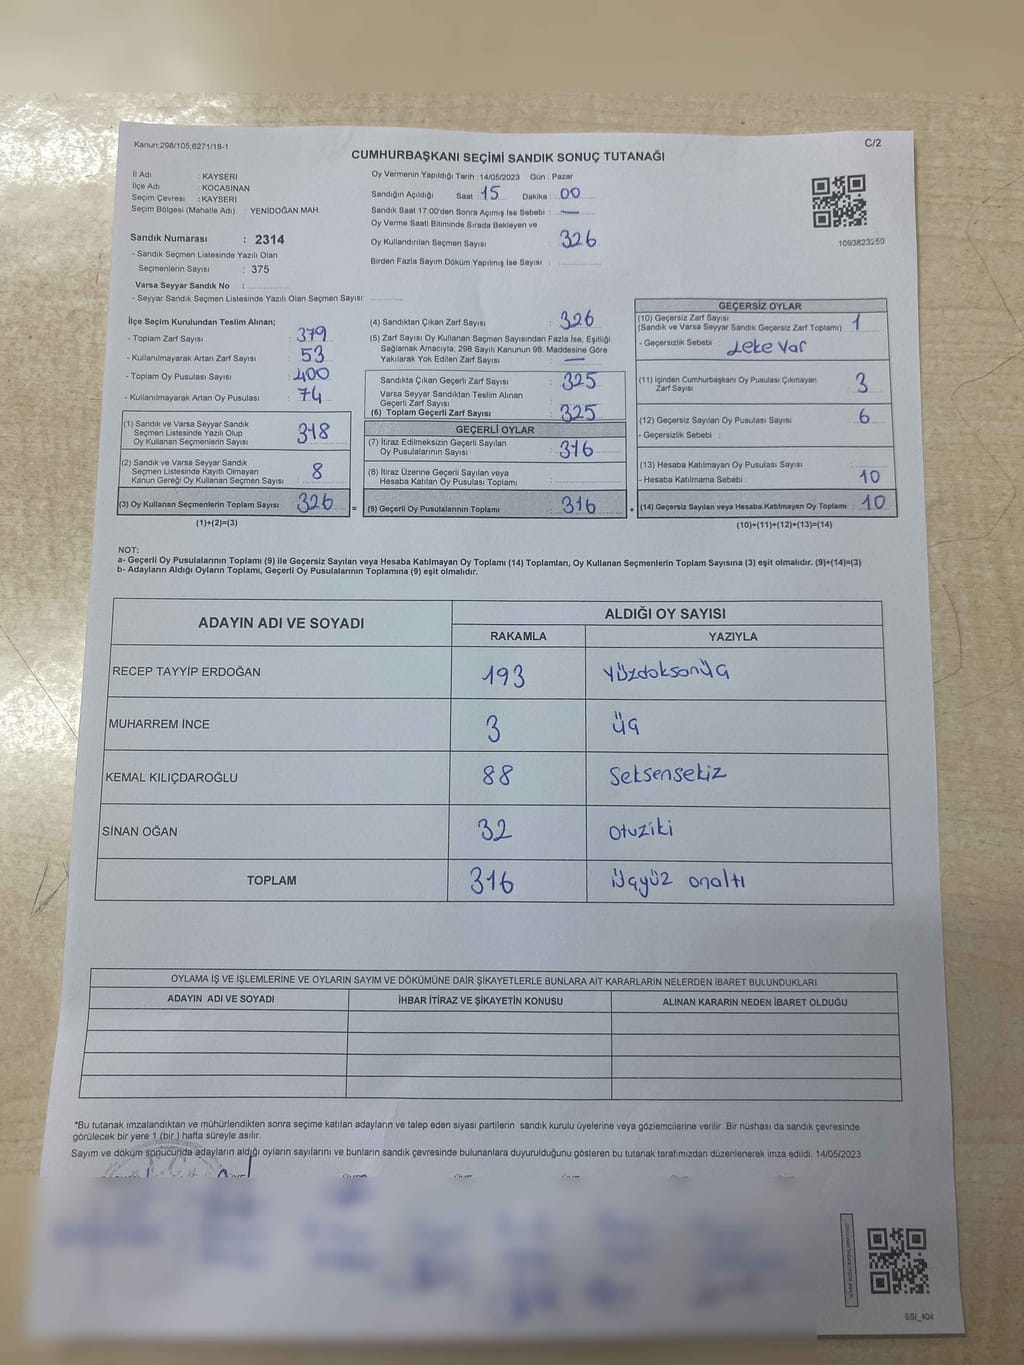 Kanun;298/105,6271/18-1
C/2
CUMHURBAŞKANI SEÇİMİ SANDIK SONUÇ TUTANAĞI
İl Adı : KAYSERİ
İlçe Adı : KOCASİNAN
Seçim Çevresi : KAYSERİ
Seçim Bölgesi (Mahalle Adı) : YENİDOĞAN MAH.
Sandık Numarası : 2314
- Sandık Seçmen Listesinde Yazılı Olan
Seçmenlerin Sayısı : 375
Varsa Seyyar Sandık No :
- Seyyar Sandık Seçmen Listesinde Yazılı Olan Seçmen Sayısı:
Oy Vermenin Yapıldığı Tarih : 14/05/2023 Gün : Pazar
Sandığın Açıldığı Saat : 15 Dakika : 00
Sandık Saat 17:00'den Sonra Açımış İse Sebebi : —
Oy Verme Saati Bitiminde Sırada Bekleyen ve
Oy Kullandırılan Seçmen Sayısı : 326
Birden Fazla Sayım Döküm Yapılmış İse Sayısı :
1093823259
İlçe Seçim Kurulundan Teslim Alınan;
- Toplam Zarf Sayısı : 379
- Kullanılmayarak Artan Zarf Sayısı : 53
- Toplam Oy Pusulası Sayısı : 400
- Kullanılmayarak Artan Oy Pusulası : 74
(1) Sandık ve Varsa Seyyar Sandık
Seçmen Listesinde Yazılı Olup
Oy Kullanan Seçmenlerin Sayısı : 318
(2) Sandık ve Varsa Seyyar Sandık
Seçmen Listesinde Kayıtlı Olmayan
Kanun Gereği Oy Kullanan Seçmen Sayısı : 8
(3) Oy Kullanan Seçmenlerin Toplam Sayısı : 326 =
(1)+(2)=(3)
(4) Sandıktan Çıkan Zarf Sayısı : 326
(5) Zarf Sayısı Oy Kullanan Seçmen Sayısından Fazla İse, Eşitliği
Sağlamak Amacıyla, 298 Sayılı Kanunun 98. Maddesine Göre
Yakılarak Yok Edilen Zarf Sayısı : —
Sandıkta Çıkan Geçerli Zarf Sayısı : 325
Varsa Seyyar Sandıktan Teslim Alınan
Geçerli Zarf Sayısı :
(6) Toplam Geçerli Zarf Sayısı : 325
GEÇERLİ OYLAR
(7) İtiraz Edilmeksizin Geçerli Sayılan
Oy Pusulalarının Sayısı : 316
(8) İtiraz Üzerine Geçerli Sayılan veya
Hesaba Katılan Oy Pusulası Toplamı :
(9) Geçerli Oy Pusulalarının Toplamı : 316 +
GEÇERSİZ OYLAR
(10) Geçersiz Zarf Sayısı
(Sandık ve Varsa Seyyar Sandık Geçersiz Zarf Toplamı) : 1
- Geçersizlik Sebebi : Leke var
(11) İçinden Cumhurbaşkanı Oy Pusulası Çıkmayan
Zarf Sayısı : 3
(12) Geçersiz Sayılan Oy Pusulası Sayısı : 6
- Geçersizlik Sebebi :
(13) Hesaba Katılmayan Oy Pusulası Sayısı :
- Hesaba Katılmama Sebebi : 10
(14) Geçersiz Sayılan veya Hesaba Katılmayan Oy Toplamı : 10
(10)+(11)+(12)+(13)=(14)
NOT:
a- Geçerli Oy Pusulalarının Toplamı (9) ile Geçersiz Sayılan veya Hesaba Katılmayan Oy Toplamı (14) Toplamları, Oy Kullanan Seçmenlerin Toplam Sayısına (3) eşit olmalıdır. (9)+(14)=(3)
b- Adayların Aldığı Oyların Toplamı, Geçerli Oy Pusulalarının Toplamına (9) eşit olmalıdır.
ADAYIN ADI VE SOYADI
ALDIĞI OY SAYISI
RAKAMLA YAZIYLA
RECEP TAYYİP ERDOĞAN 193 Yüzdoksonüç
MUHARREM İNCE 3 üç
KEMAL KILIÇDAROĞLU 88 Seksensekiz
SİNAN OĞAN 32 otuziki
TOPLAM 316 üçyüz onaltı
OYLAMA İŞ VE İŞLEMLERİNE VE OYLARIN SAYIM VE DÖKÜMÜNE DAİR ŞİKAYETLERLE BUNLARA AİT KARARLARIN NELERDEN İBARET BULUNDUKLARI
ADAYIN ADI VE SOYADI İHBAR İTİRAZ VE ŞİKAYETİN KONUSU ALINAN KARARIN NEDEN İBARET OLDUĞU
*Bu tutanak imzalandıktan ve mühürlendikten sonra seçime katılan adayların ve talep eden siyasi partilerin sandık kurulu üyelerine veya gözlemcilerine verilir .Bir nüshası da sandık çevresinde
görülecek bir yere 1 (bir ) hafta süreyle asılır.
Sayım ve döküm sonucunda adayların aldığı oyların sayılarını ve bunların sandık çevresinde bulunanlara duyurulduğunu gösteren bu tutanak tarafımızdan düzenlenerek imza edildi. 14/05/2023
SSI_404